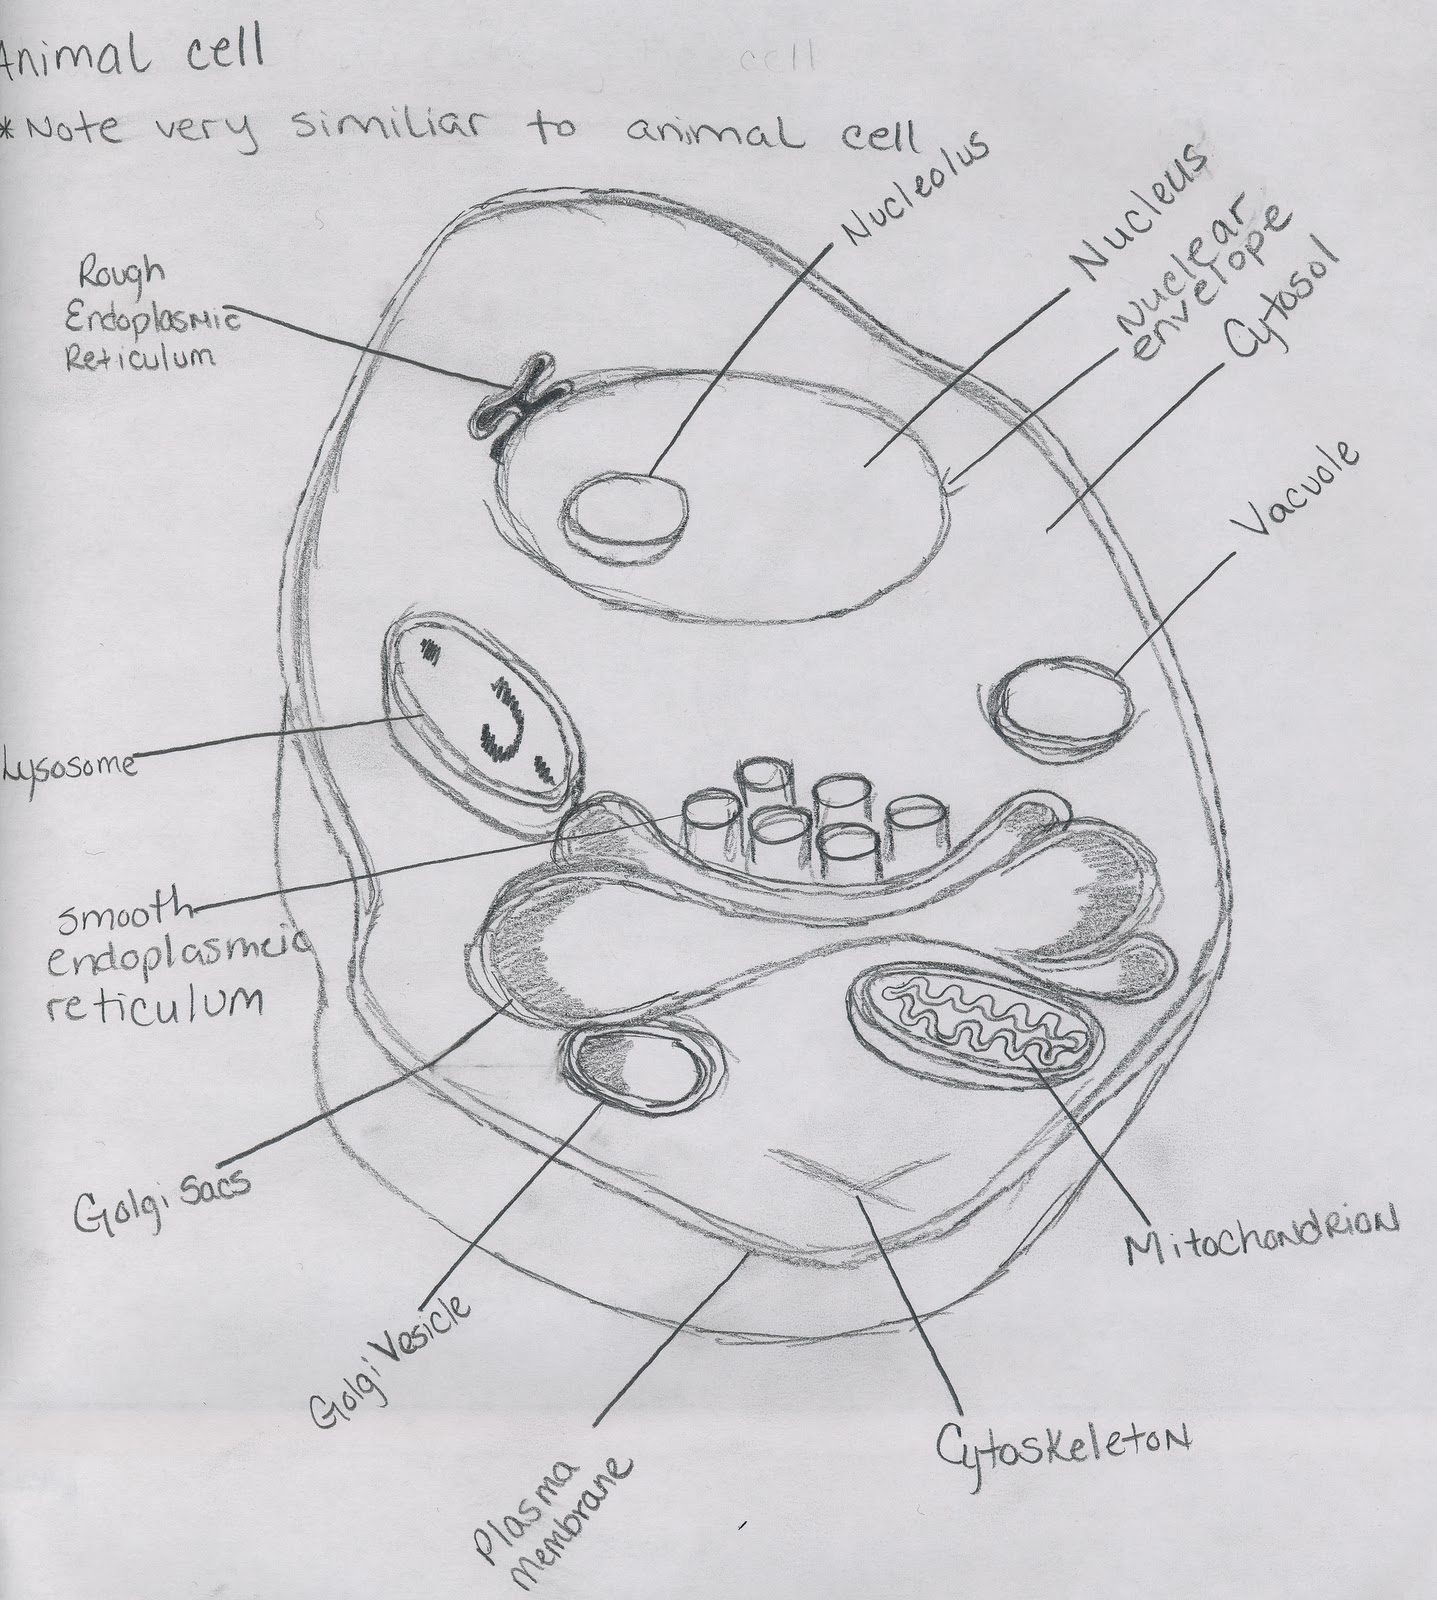 Animal cell
cell
*Note very similiar to animal cell
Nucleolus
Nucleus
Nuclear
envelope
Cytosol
Vacuole
Rough
Endoplasmic
Reticulum
Lysosome
smooth
endoplasmeic
reticulum
Golgi sacs
Golgi Vesicle
Plasma
membrane
Cytoskeleton
Mitochondrion